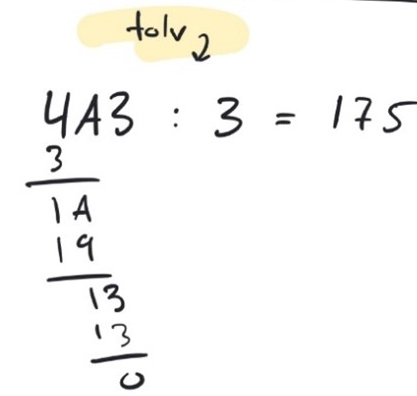 tolv
4A3 : 3 = 175
3
1A
19
13
13
0